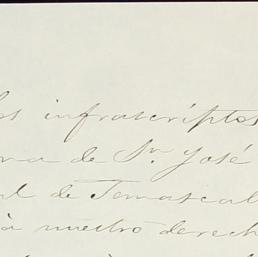 los infrascriptos
de Sn José
de Temascal
à nuestro derech